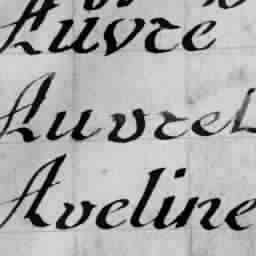 Auvre
Auvrel
Aveline